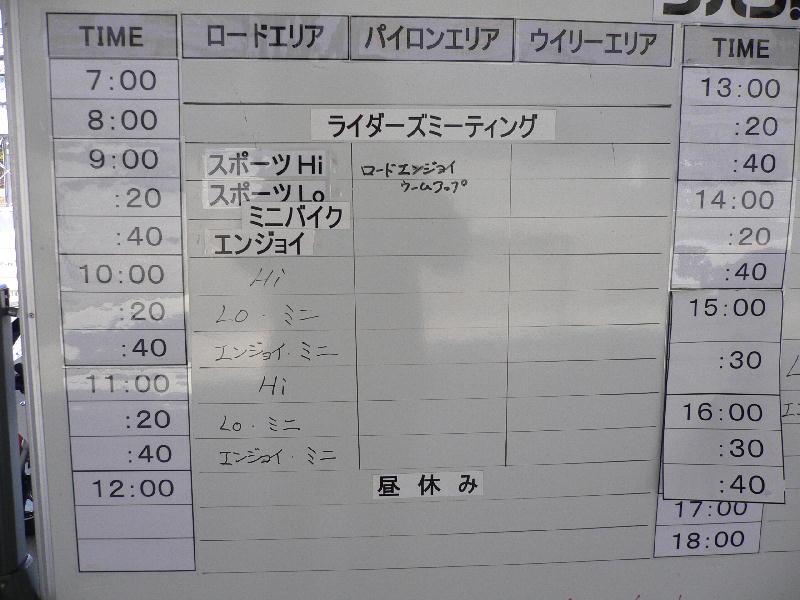 TIME ロードエリア パイロンエリア ウイリーエリア TIME
7:00 13:00
8:00 ライダーズミーティング :20
9:00 スポーツ Hi ロードエンジョイ :40
:20 スポーツ Lo ウームアップ 14:00
ミニバイク
:40 エンジョイ :20
10:00 Hi :40
:20 Lo・ミニ 15:00
:40 エンジョイ・ミニ :30
11:00 Hi 16:00
:20 Lo・ミニ :30
:40 エンジョイ・ミニ :40
12:00 昼休み 17:00
18:00